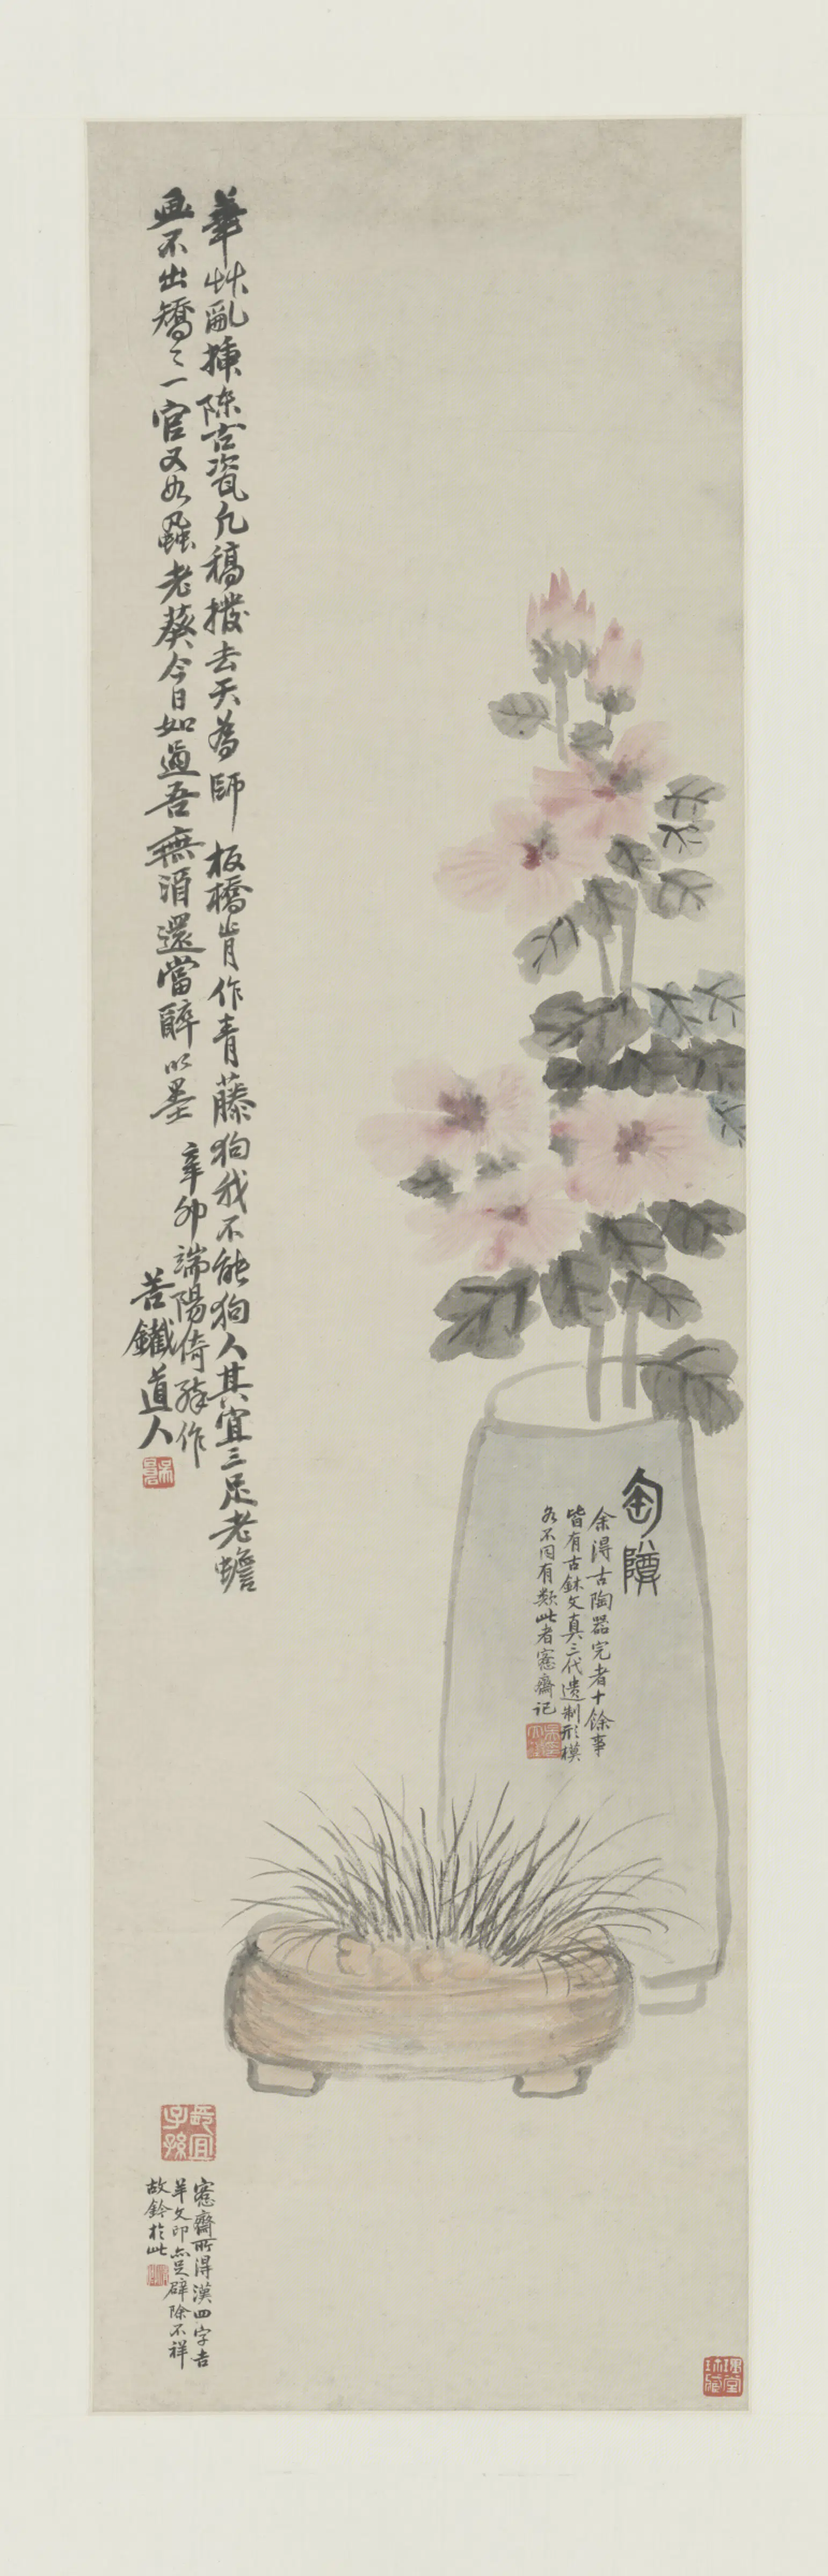 華艸亂揷陳古瓷凡稿撥去天為師板橋肯作青藤狗我不能狗人其宜三足老蟾
畫不出矯〻一官又如蝨老葵今日如過吾無酒還當醉以墨
辛卯端陽倚醉作
苦鐵道人
陶
余得古陶器完者十餘事
皆有古鉥文真三代遺制形模
各不同有類此者愙齋記
宜
子孫
愙齋所得漢四字吉
羊文印亦足辟除不祥
故鈐於此